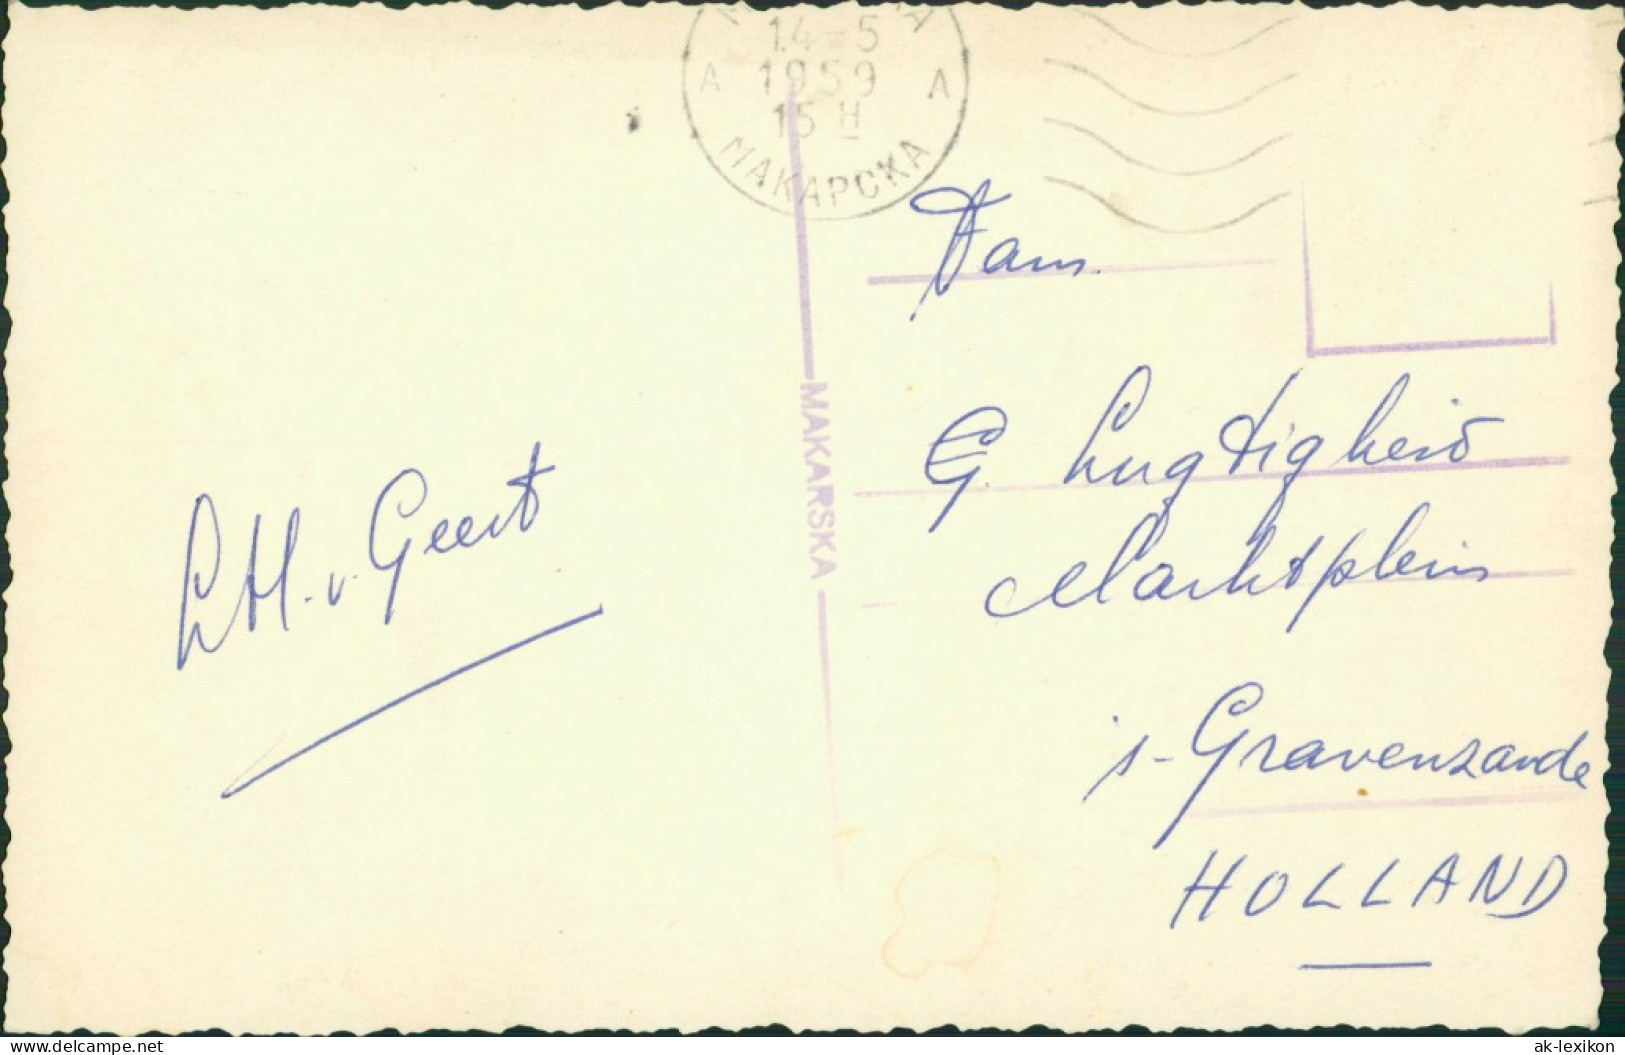 14-5
A 1959 A
15 H
МАКАРСКА
MAKARSKA
Fam.
G. Lugtigheid
Marktplein
s-Gravenzande
HOLLAND
v. Geert
www.delcampe.net
ak-lexikon